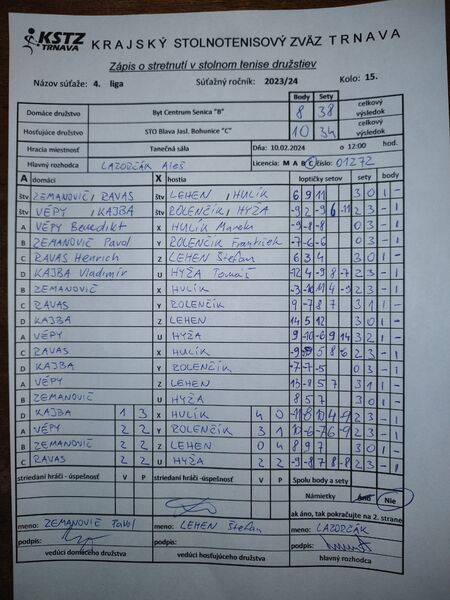 KSTZ TRNAVA KRAJSKÝ STOLNOTENISOVÝ ZVÄZ TRNAVA
Zápis o stretnutí v stolnom tenise družstiev
Názov súťaže: 4. liga Súťažný ročník: 2023/24 Kolo: 15.
Body Sety
Domáce družstvo Byt Centrum Senica "B" 8 38 celkový výsledok
Hosťujúce družstvo STO Blava Jasl. Bohunice "C" 10 34 celkový výsledok
Hracia miestnosť Tanečná sála Dňa: 10.02.2024 o 12:00 hod.
Hlavný rozhodca LAZORČÁK Aleš Licencia: M A B C číslo: 01272
A domáci X hostia loptičky setov sety body
štv ZEMANOVIČ, RAVAS štv LEHEN, HULÍK 6 9 11 3 0 1 -
štv VÉPY, KAJBA štv ROLENČÍK, HYŽA -9 2 -9 6 -11 2 3 - 1
A VÉPY Benedikt X HULÍK Marek -9 -8 -8 0 3 - 1
B ZEMANOVIČ Pavol Y ROLENČÍK František -7 -6 -6 0 3 - 1
C RAVAS Henrich Z LEHEN Štefan 6 3 4 3 0 1 -
D KAJBA Vladimír U HYŽA Tomáš -12 4 -9 8 -7 2 3 - 1
B ZEMANOVIČ X HULÍK 2 3 - 1
C RAVAS Y ROLENČÍK 9 -7 8 7 3 1 1 -
D KAJBA Z LEHEN 14 5 12 3 0 1 -
A VÉPY U HYŽA 9 -10 -6 9 14 3 2 1 -
C RAVAS X HULÍK 2 3 - 1
D KAJBA Y ROLENČÍK -7 -7 -5 0 3 - 1
A VÉPY Z LEHEN 15 -8 5 7 3 1 1 -
B ZEMANOVIČ U HYŽA 8 5 7 3 0 1 -
D KAJBA 1 3 X HULÍK 4 0 2 3 - 1
A VÉPY 2 2 Y ROLENČÍK 3 1 2 3 - 1
B ZEMANOVIČ 2 2 Z LEHEN 0 4 8 9 7 3 0 1 -
C RAVAS 2 2 U HYŽA 2 2 -9 -8 7 8 -8 2 3 - 1
striedaní hráči - úspešnosť V P striedaní hráči - úspešnosť V P Spolu body a sety
Námietky Áno Nie
ak áno, tak pokračujte na 2. strane
meno: ZEMANOVIČ Pavol meno: LEHEN Štefan meno: LAZORČÁK
podpis: podpis: podpis:
vedúci domáceho družstva vedúci hosťujúceho družstva hlavný rozhodca